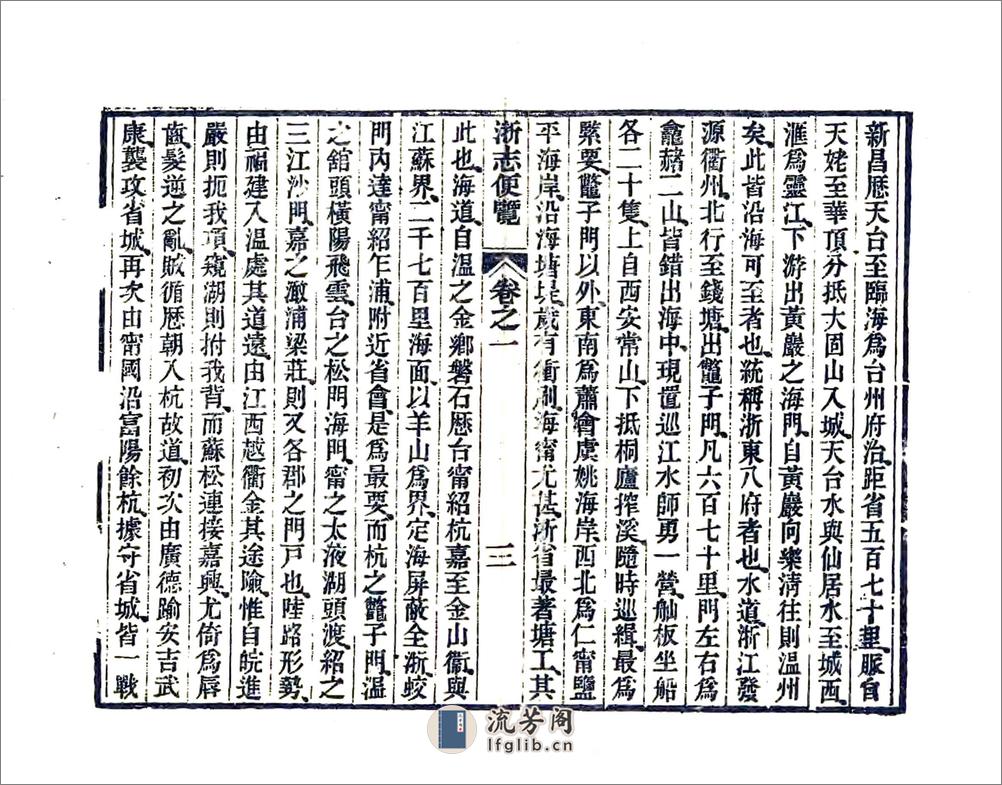 新昌歷天台至臨海爲台州府治距省五百七十里脈自
天姥至華頂分抵大固山入城天台水與仙居水至城西
滙爲靈江下游出黃巖之海門自黃巖向樂淸往則温州
矣此皆沿海可至者也統稱浙東八府者也水道浙江發
源衢州北行至錢塘出鼈子門凡六百七十里門左右爲
龕赭二山皆錯出海中現置巡江水師勇一營舢板坐船
各二十隻上自西安常山下抵桐廬搾溪隨時巡緝最爲
緊要鼈子門以外東南爲蕭會虞姚海岸西北爲仁甯鹽
平海岸沿海塘堤歲有衝刷海甯尤甚浙省最著塘工其
浙志便覽 卷之一 三
此也海道自溫之金鄉磐石歷台甯紹杭嘉至金山衞與
江蘇界二千七百里海面以羊山爲界定海屏蔽全浙蛟
門內達甯紹乍浦附近省會是爲最要而杭之鼈子門溫
之舘頭橫陽飛雲台之松門海門甯之太液湖頭渡紹之
三江沙門嘉之澉浦梁莊則又各郡之門戸也陸路形勢
由福建入溫處其道遠由江西越衢金其途險惟自皖進
嚴則扼我項窺湖則拊我背而蘇松連接嘉興尤倚爲唇
齒髮逆之亂賊循歷朝入杭故道初次由廣德踰安吉武
康襲攻省城再次由甯國沿富陽餘杭據守省城皆一戰
流芳阁
lfglib.cn